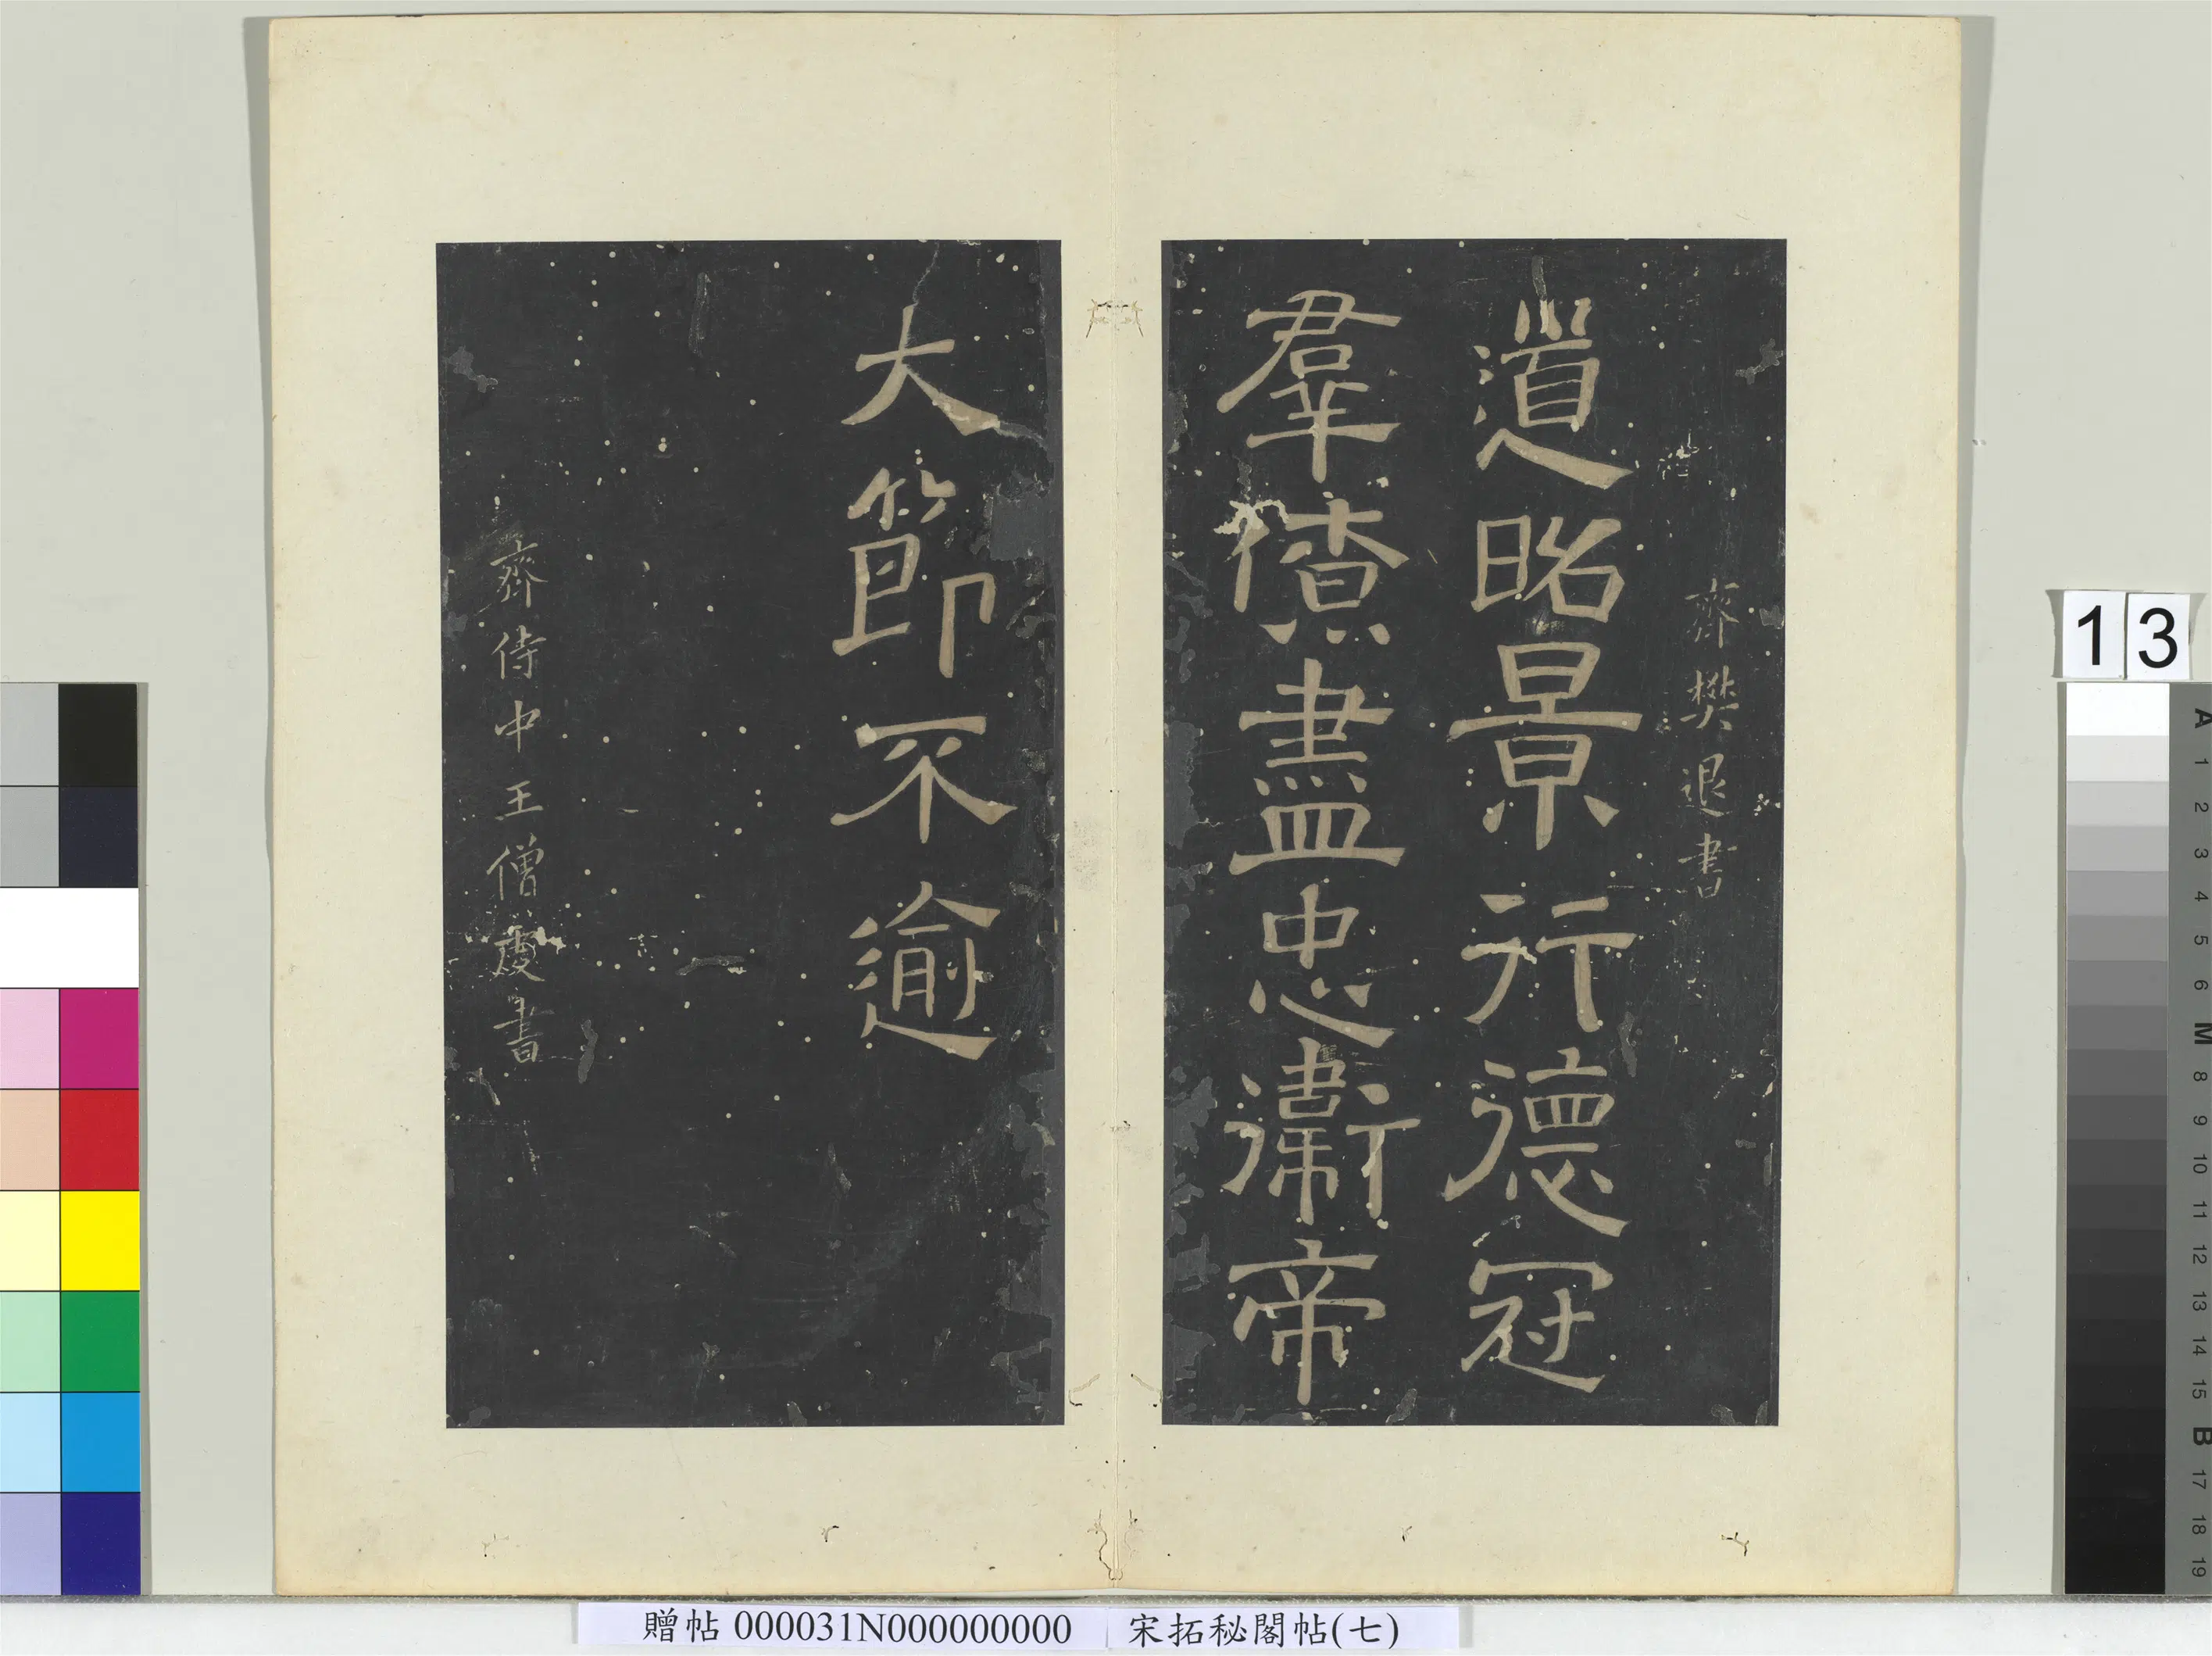 齊樊遜書
道昭景行德冠
羣僚盡忠衛帝
大節不逾
齊侍中王僧虔書
13
A 1 2 3 4 5 6 M 8 9 10 11 12 13 14 15 B 17 18 19
贈帖 000031N000000000 宋拓秘閣帖(七)